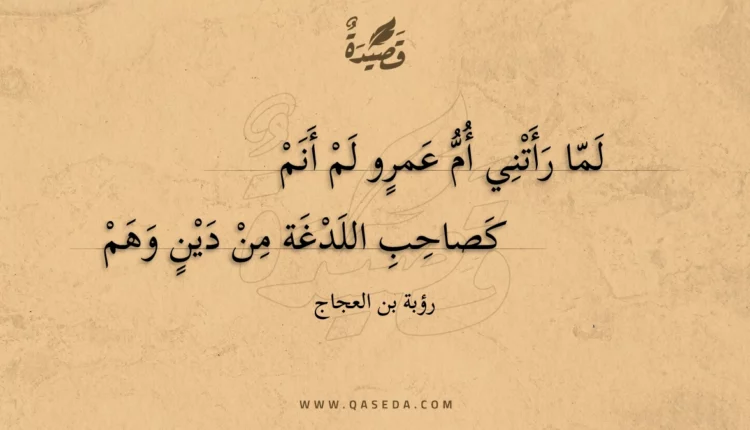 قَصِيدَةٌ
لَمّا رَأَتْنِي أُمُّ عَمرٍو لَمْ أَنَمْ
كَصاحِبِ اللَدْغَة مِنْ دَيْنٍ وَهَمْ
رؤبة بن العجاج
WWW.QASEDA.COM